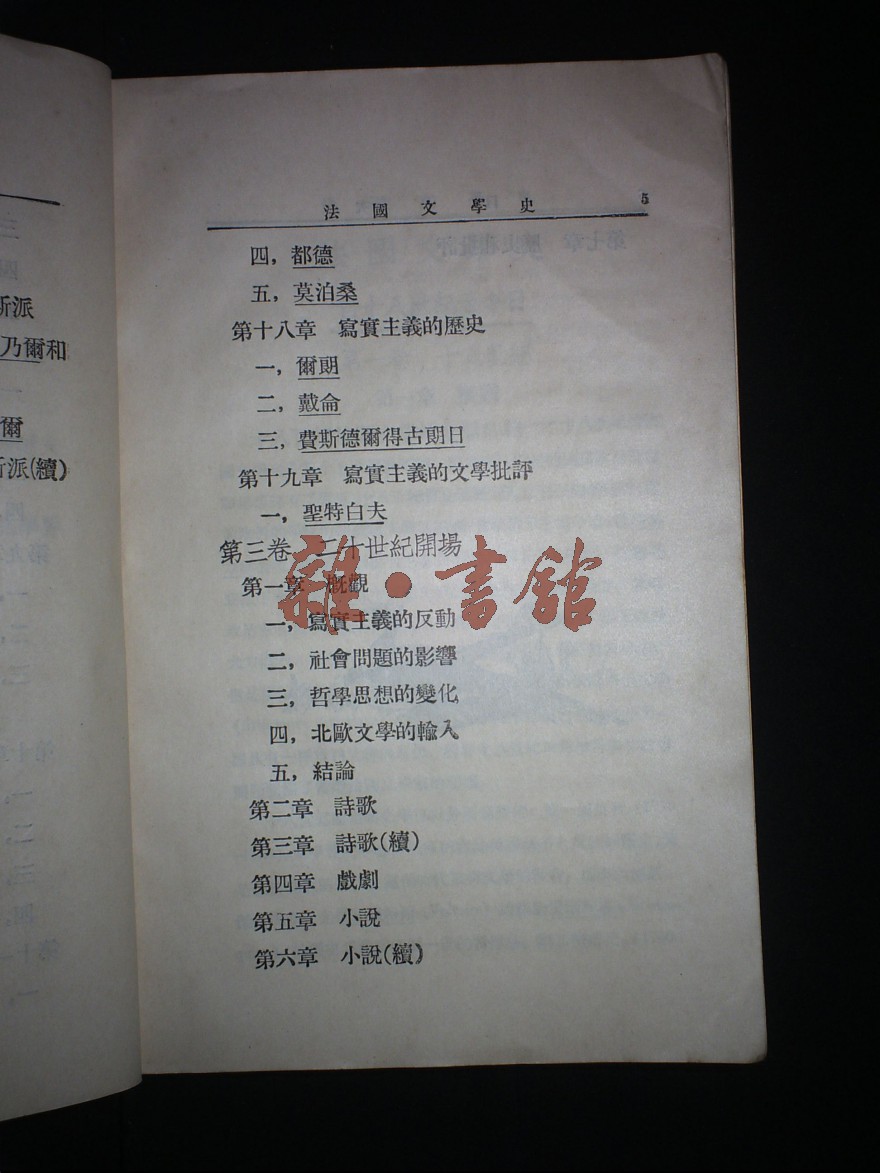 法國文學史 5
四，都德
五，莫泊桑
第十八章 寫實主義的歷史
一，爾朗
二，戴侖
三，費斯德爾得古朗日
第十九章 寫實主義的文學批評
一，聖特白夫
第三卷 二十世紀開場
第一章 概觀
一，寫實主義的反動
二，社會問題的影響
三，哲學思想的變化
四，北歐文學的輸入
五，結論
第二章 詩歌
第三章 詩歌(續)
第四章 戲劇
第五章 小說
第六章 小說(續)
雜·書館
斯派
乃爾和
爾
斯派(續)